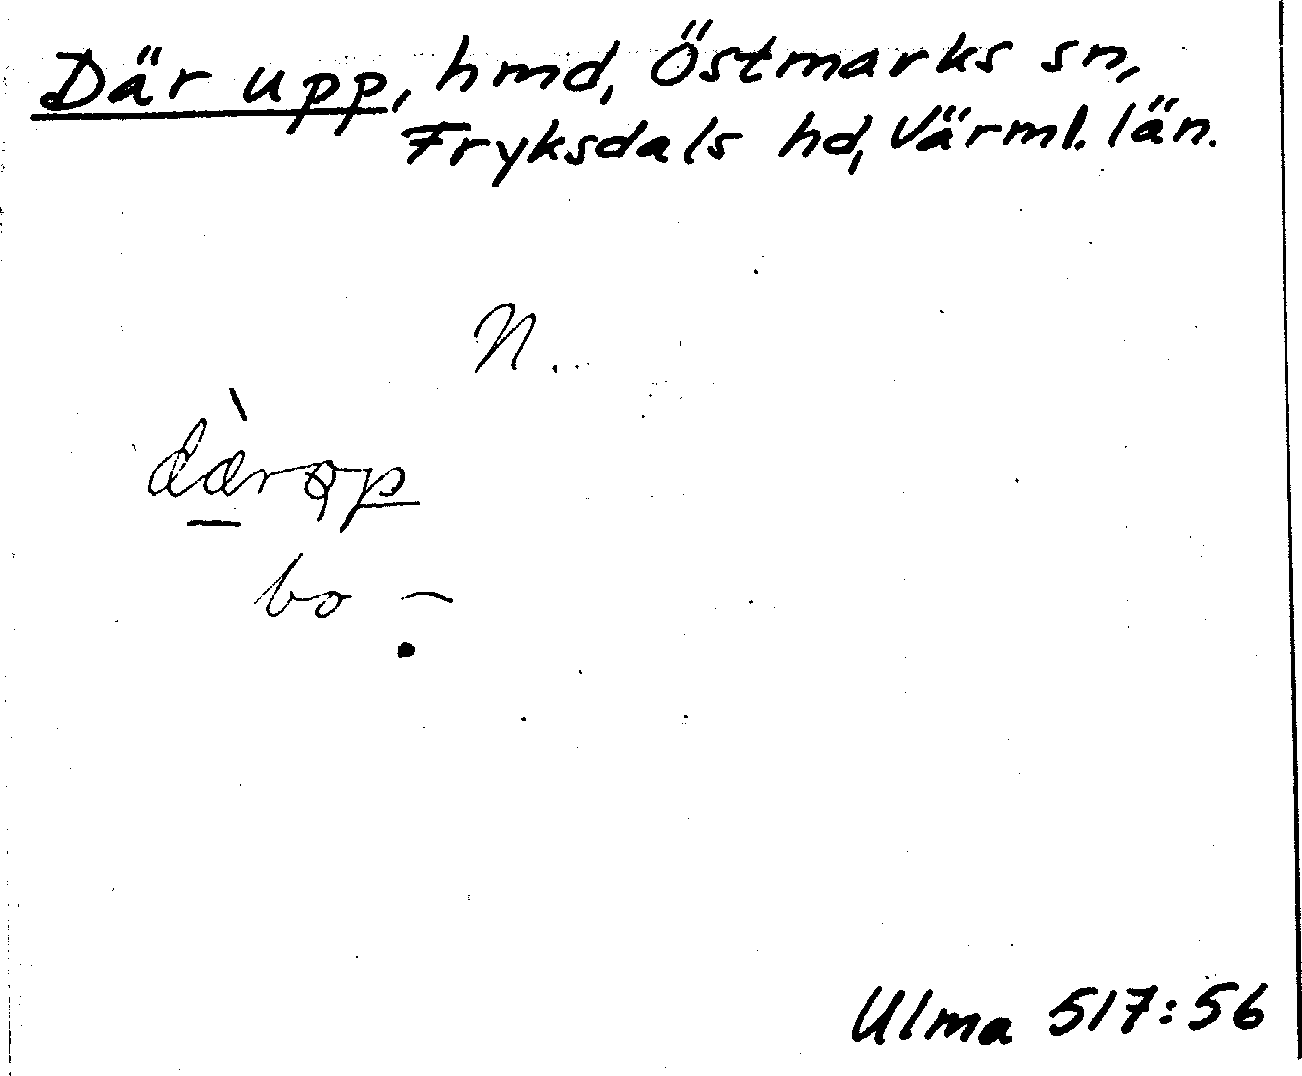 Där upp, hmd, Östmarks sn,
Fryksdals hd, Värml. län.
N.
bo –
Ulma 517:56